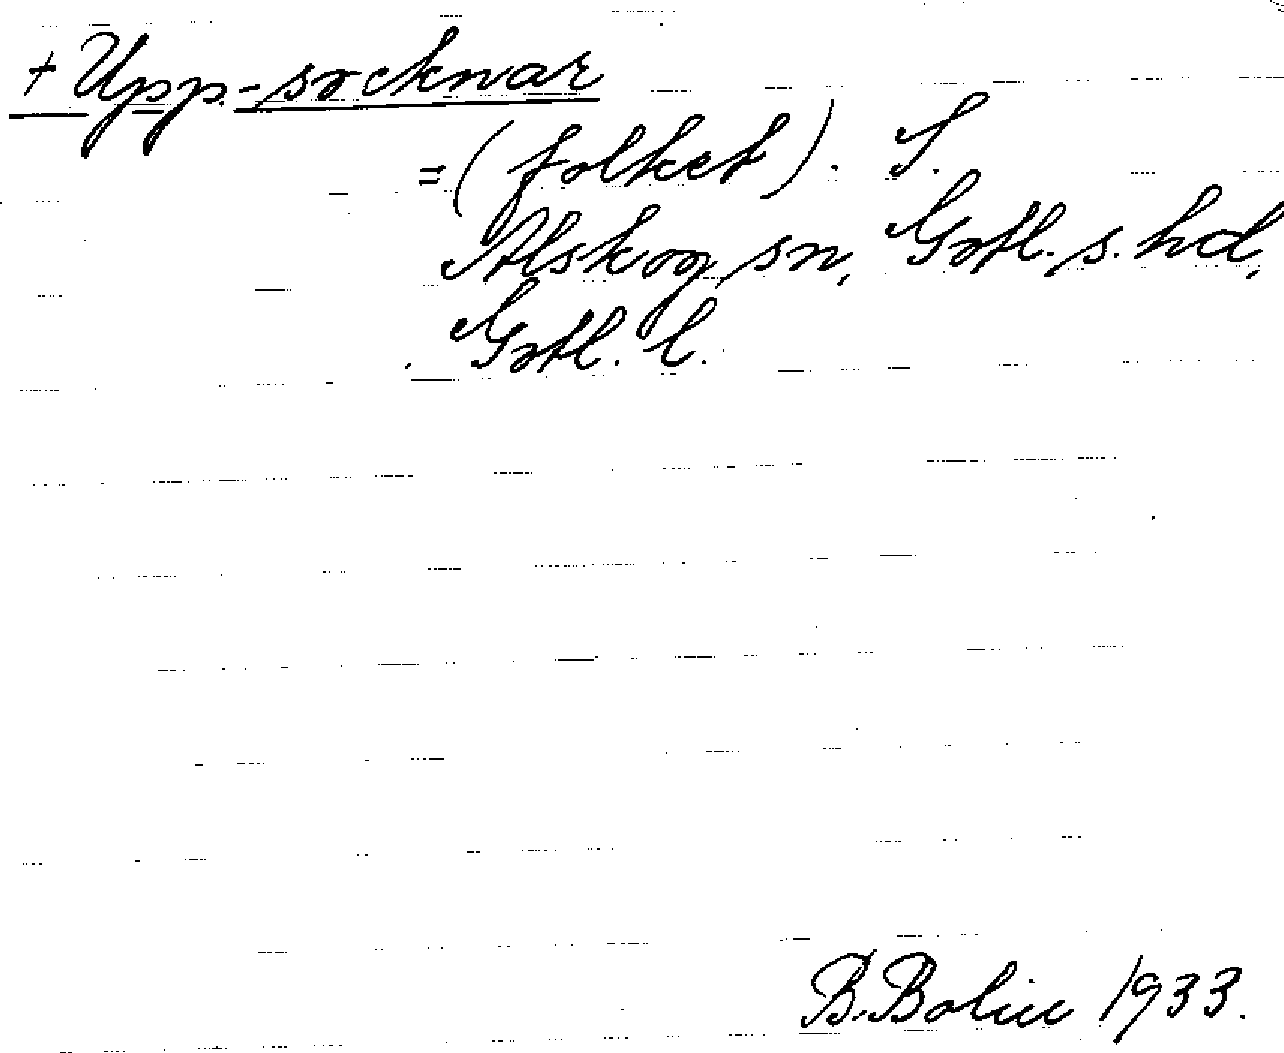 + Upp-socknar
= (folket). S.
Alskog sn, Gotl. s. hd,
Gotl. l.
B. Bolin 1933.